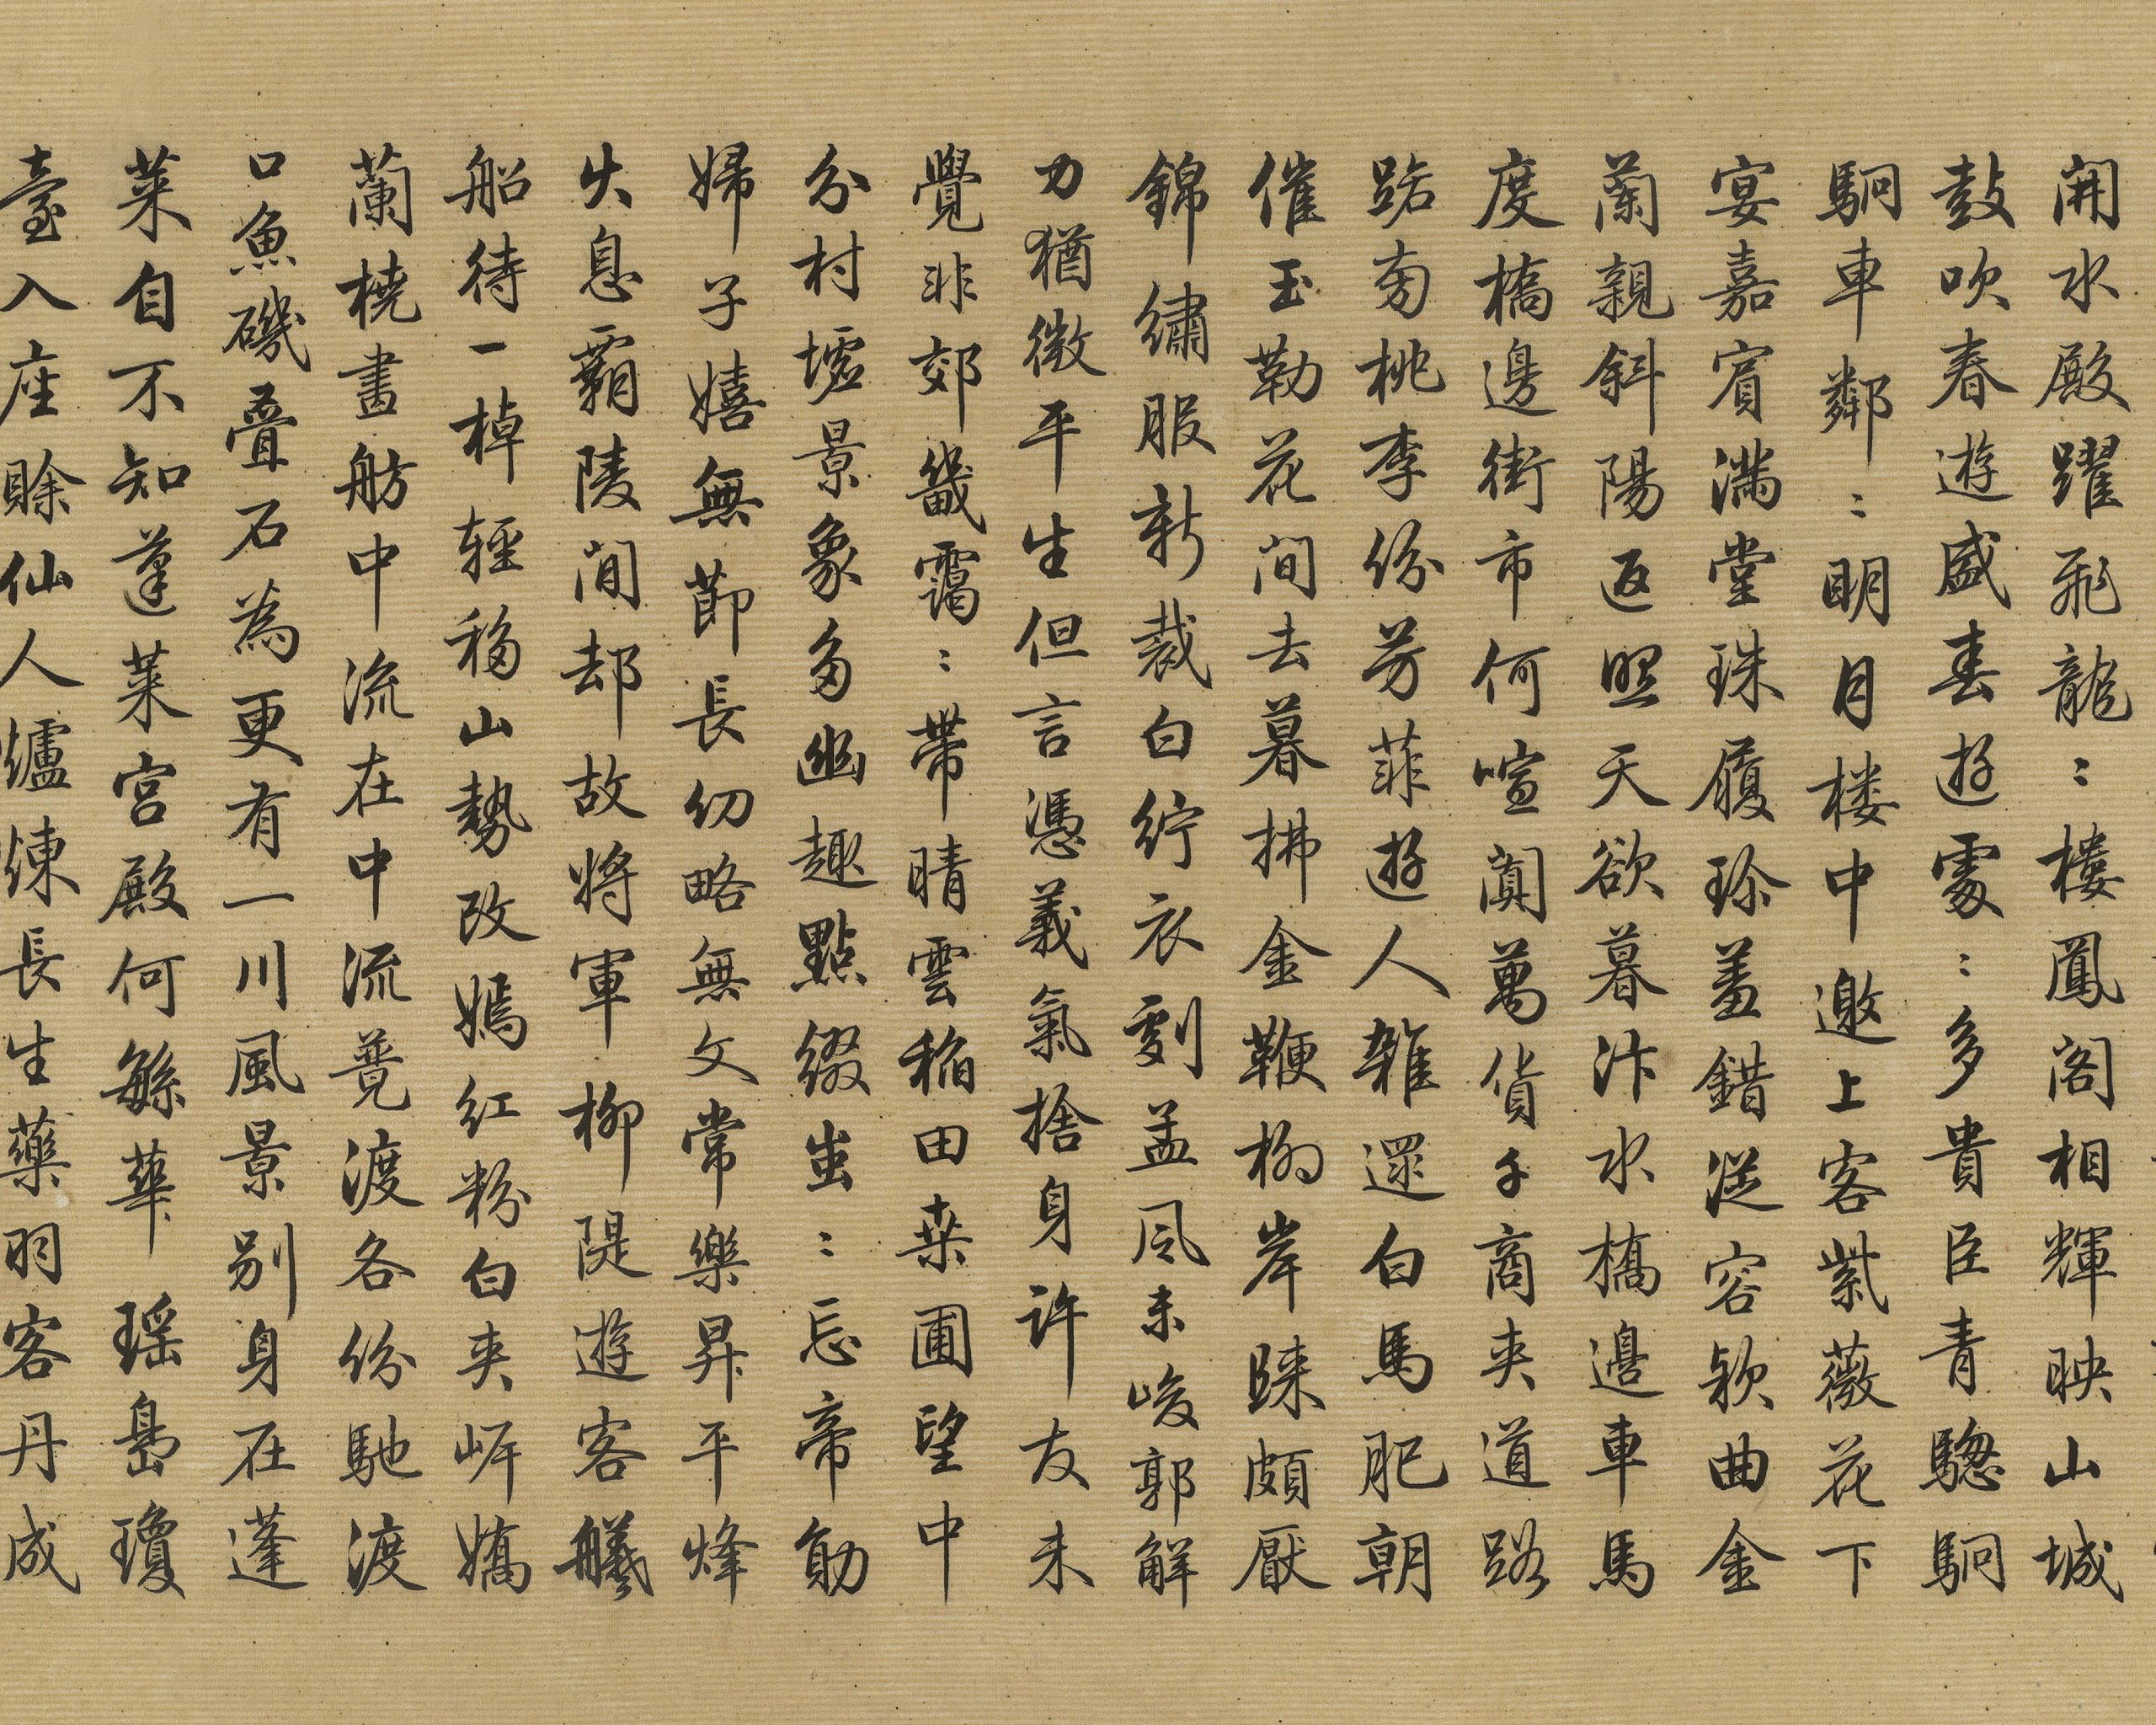 開水殿躍飛龍〻樓鳳閣相輝映山城
鼓吹春遊盛春遊處〻多貴臣青驄駉
駉車鄰〻明月楼中邀上客紫薇花下
宴嘉賓滿堂珠履珍羞錯從容款曲金
蘭親斜陽返照天欲暮汴水橋邊車馬
度橋邊街市何喧闐萬貨千商夾道路
路旁桃李份芳菲遊人雜遝白馬肥朝
催玉勒花間去暮拂金鞭柳岸歸頗厭
錦繡服新裁白紵衣劇孟風未峻郭解
力猶微平生但言憑義氣捨身許友未
覺非郊畿靄〻帶晴雲稲田桒圃望中
分村墟景象多幽趣點綴蚩〻忘帝勛
婦子嬉嬉無節長幼略無文常樂昇平烽
火息霸陵閒却故將軍柳隄遊客艤
船待一棹輕移山勢改嫣紅粉白夾岸嬌
蘭橈畫舫中流在中流競渡各份馳渡
口魚磯疊石為更有一川風景別身在蓬
萊自不知蓬萊宮殿何繇華瑶島瓊
臺入座賒仙人爐煉長生藥羽客丹成